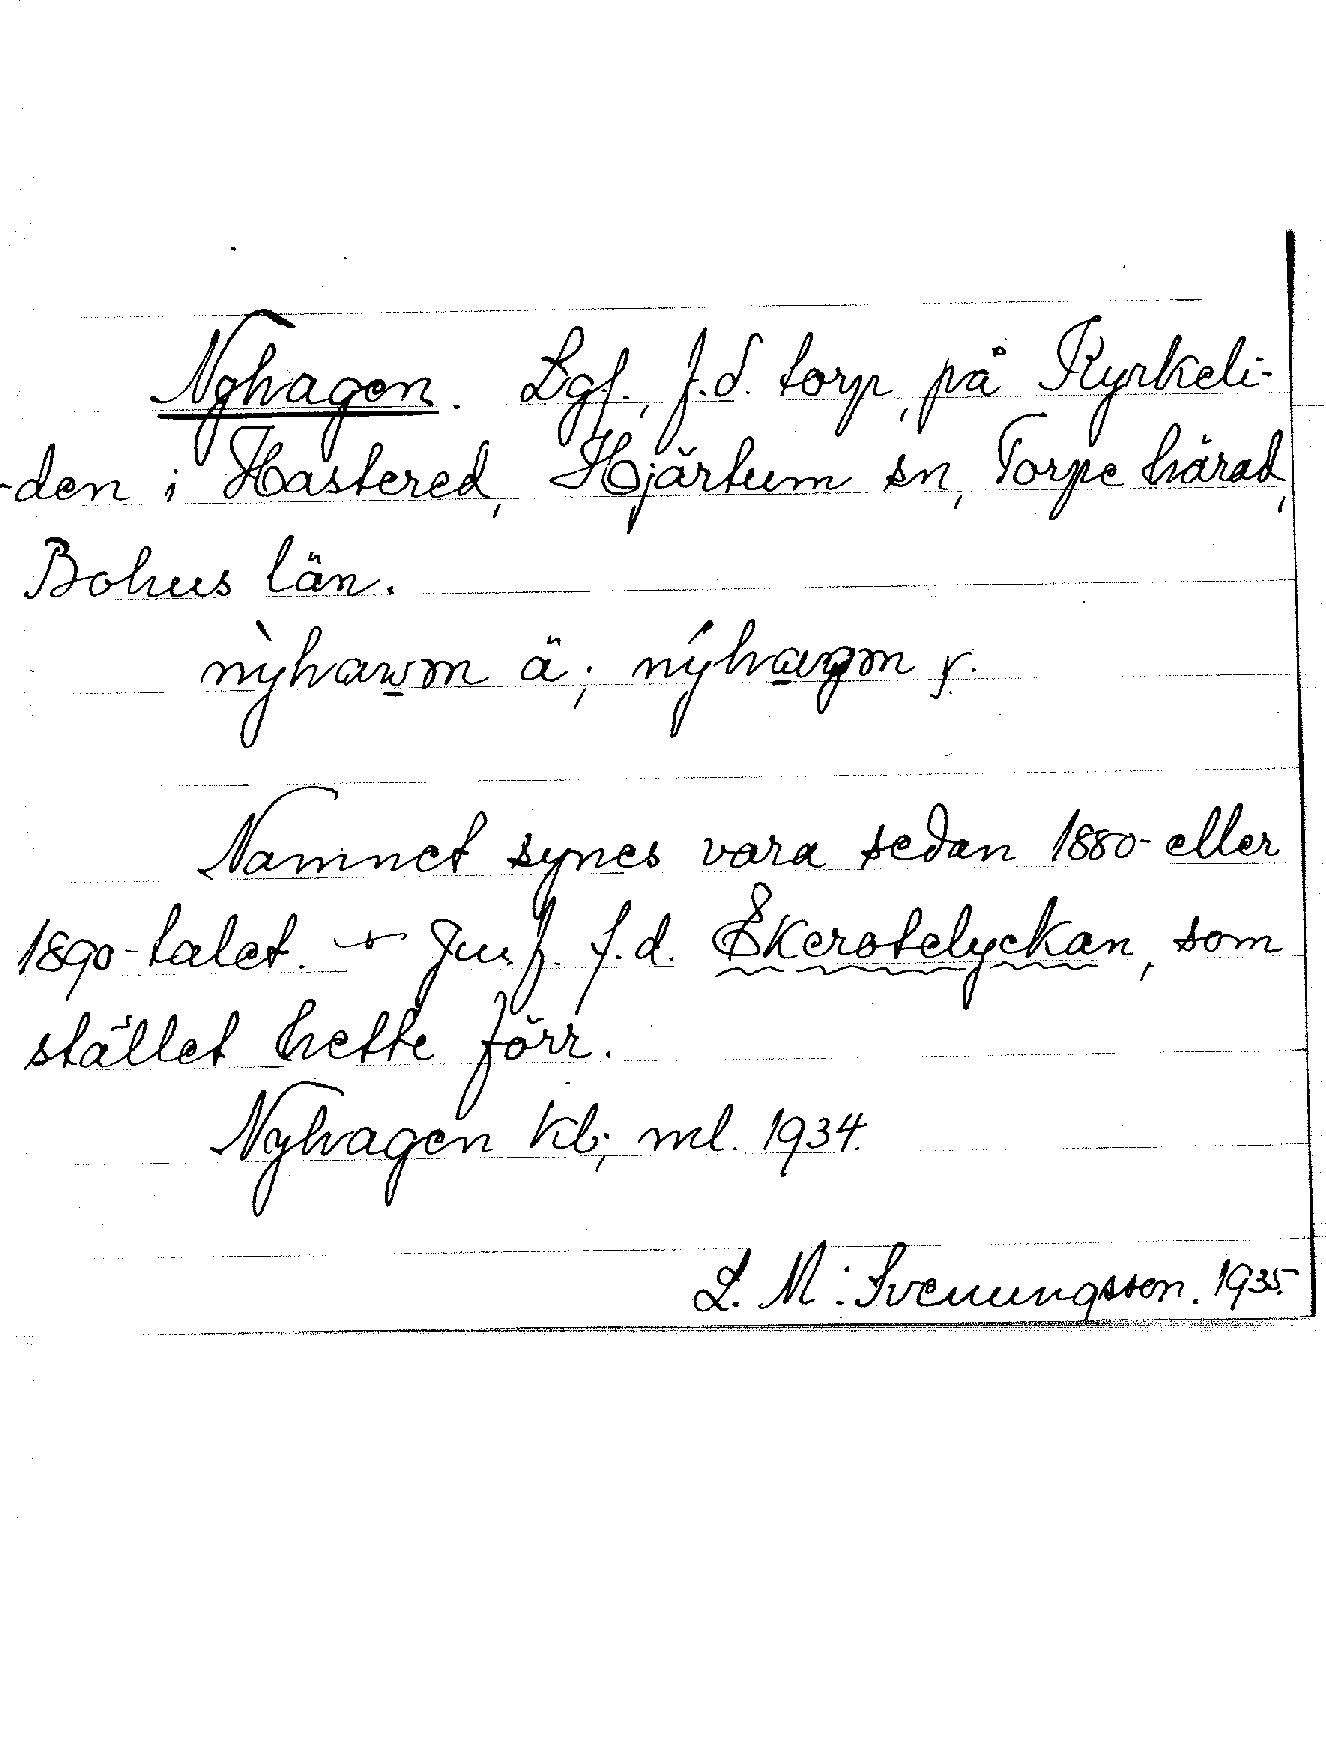 Nyhagen. Lgf., f.d. torp, på Kyrkeli-
-den i Hastered, Hjärtum sn, Torpe härad,
Bohus län.
nỳhawm ä; nýhagm y.
Namnet synes vara sedan 1880- eller
1890-talet. — Jmf. f.d. Ekerotelyckan, som
stället hette förr.
Nyhagen kb; ml. 1934.
L. M: Svenungsson. 1935.